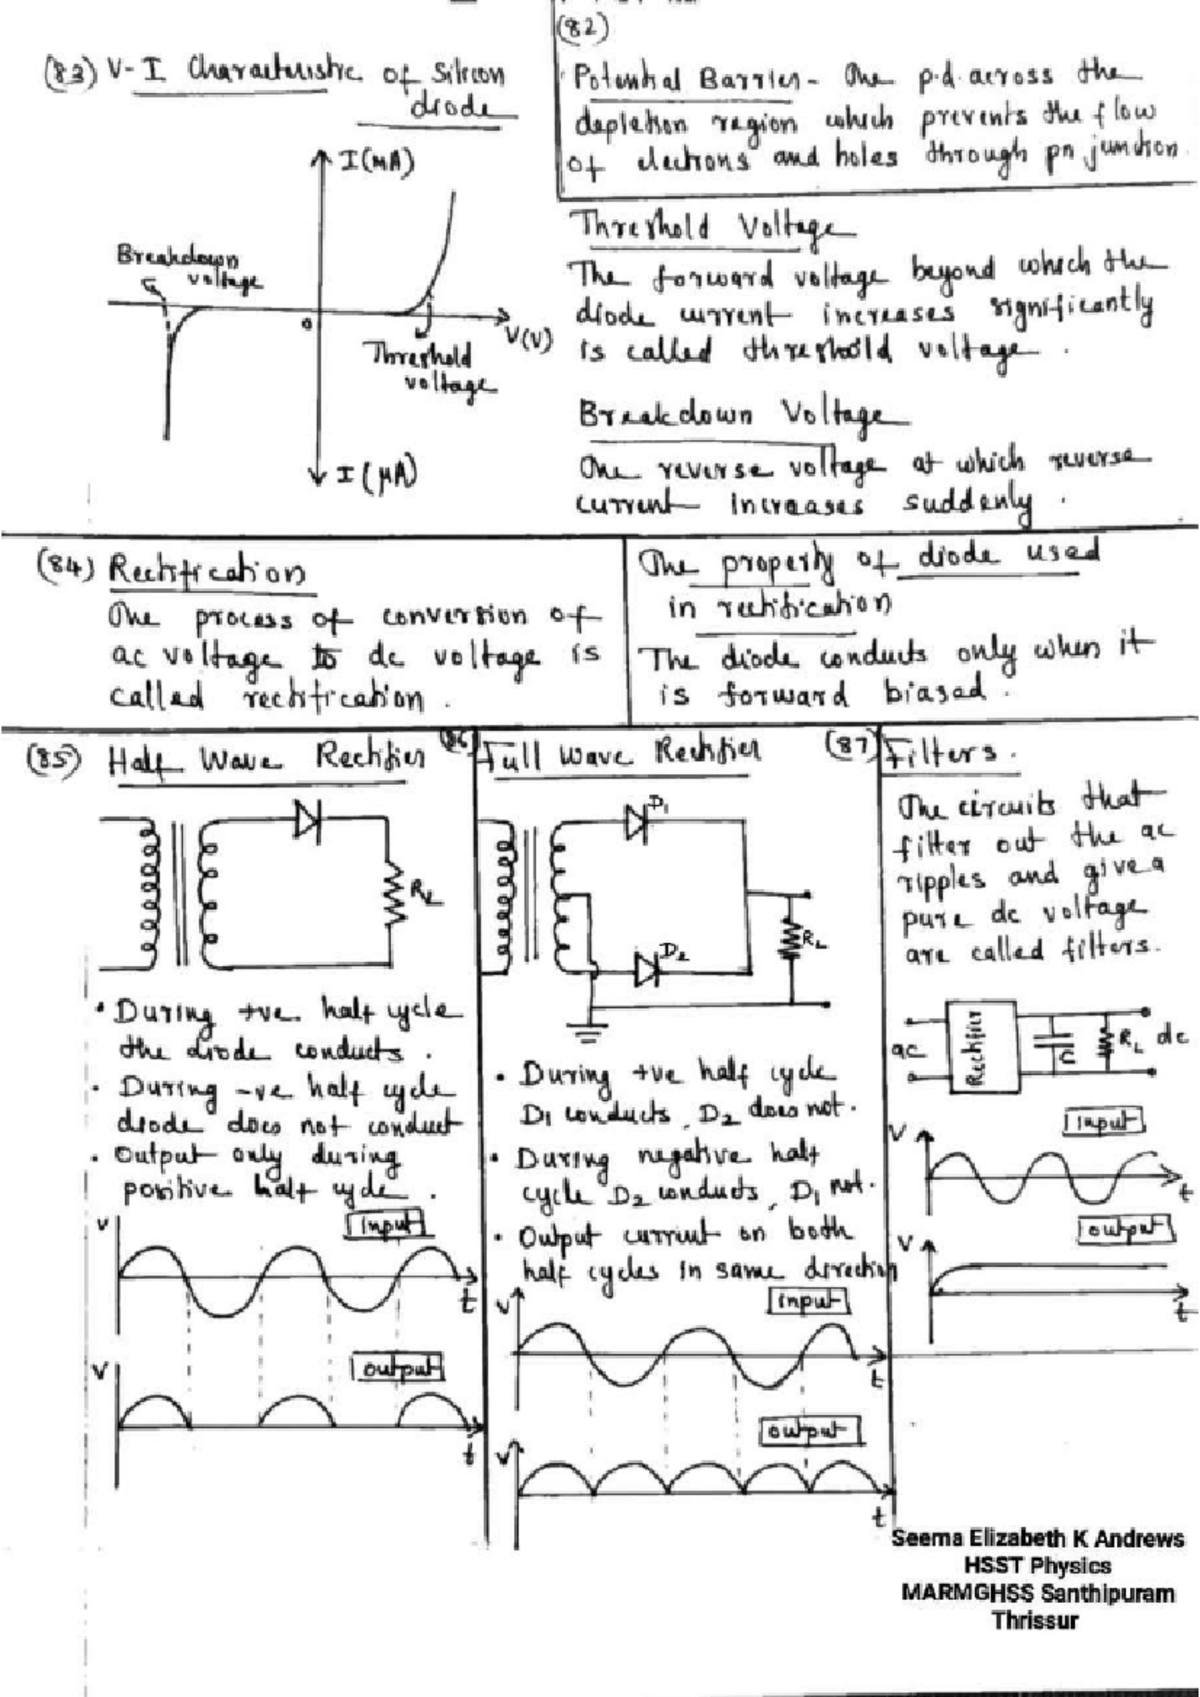 (82)
Potential Barrier - The p.d. across the
depletion region which prevents the flow
of electrons and holes through pn junction.
(83) V-I Characteristic of Silicon
diode
I(mA)
Breakdown
voltage
0
V(V)
Threshold
voltage
I(μA)
Threshold Voltage
The forward voltage beyond which the
diode current increases significantly
is called threshold voltage.
Breakdown Voltage
The reverse voltage at which reverse
current increases suddenly.
(84) Rectification
The process of conversion of
ac voltage to dc voltage is
called rectification.
The property of diode used
in rectification
The diode conducts only when it
is forward biased.
(85) Half Wave Rectifier
RL
• During +ve half cycle
the diode conducts.
• During -ve half cycle
diode does not conduct
• Output only during
positive half cycle.
V
input
t
V
output
t
(86) Full Wave Rectifier
D1
D2
RL
• During +ve half cycle
D1 conducts, D2 does not.
• During negative half
cycle D2 conducts, D1 not.
• Output current on both
half cycles in same direction
V
input
t
V
output
t
(87) Filters.
The circuits that
filter out the ac
ripples and give a
pure dc voltage
are called filters.
ac
Rectifier
C
RL
dc
V
input
t
V
output
t
Seema Elizabeth K Andrews
HSST Physics
MARMGHSS Santhipuram
Thrissur